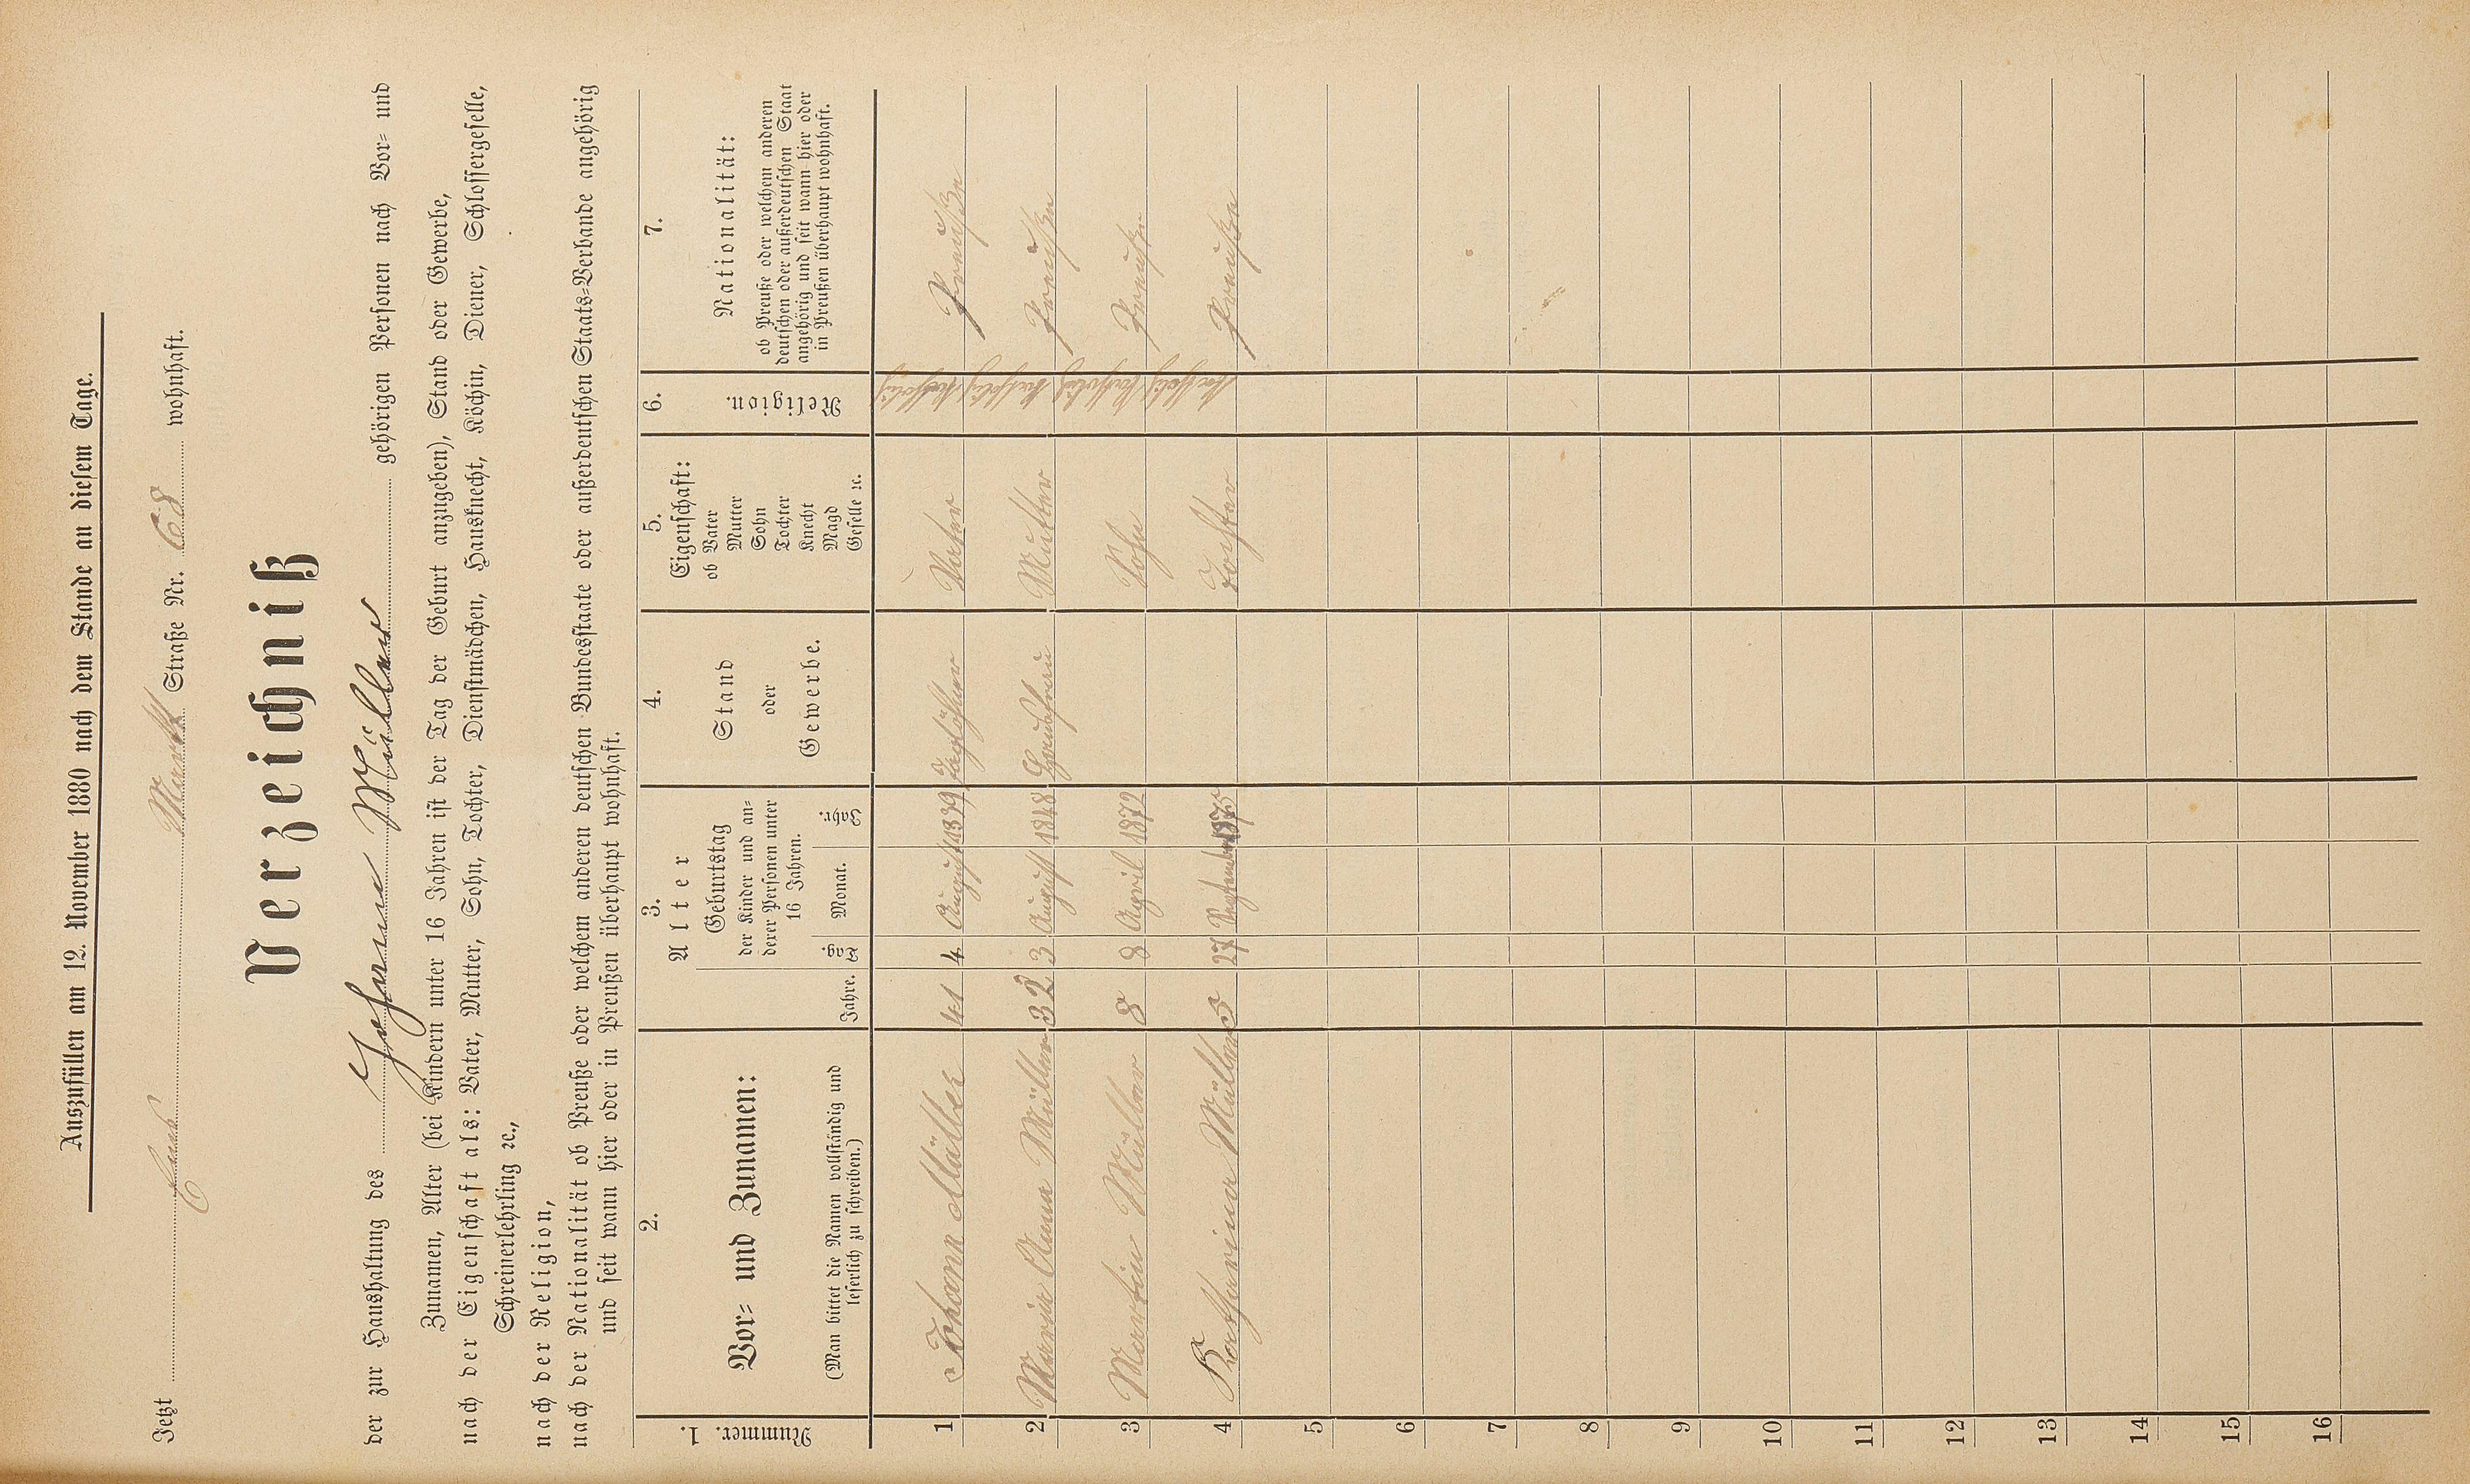 Auszufüllen am 12. November 1880 nach dem Stande an diesem Tage.
Jetzt Markt Straße Nr. 68 wohnhaft.
Verzeichniß
der zur Haushaltung des Johann Müller gehörigen Personen nach Vor- und
Zunamen, Alter (bei Kindern unter 16 Jahren ist der Tag der Geburt anzugeben), Stand oder Gewerbe,
nach der Eigenschaft als: Vater, Mutter, Sohn, Tochter, Dienstmädchen, Hausknecht, Köchin, Diener, Schlossergeselle,
Schreinerlehrling ꝛc.,
nach der Religion,
nach der Nationalität ob Preuße oder welchem anderen deutschen Bundesstaate oder außerdeutschen Staats-Verbande angehörig
und seit wann hier oder in Preußen überhaupt wohnhaft.
1.
Nummer.
2.
Vor- und Zunamen:
(Man bittet die Namen vollständig und
leserlich zu schreiben.)
3.
Alter
Jahre.
Geburtstag
der Kinder und an-
derer Personen unter
16 Jahren.
Tag.
Monat.
Jahr.
4.
Stand
oder
Gewerbe.
5.
Eigenschaft:
ob Vater
Mutter
Sohn
Tochter
Knecht
Magd
Geselle ꝛc.
6.
Religion.
7.
Nationalität:
ob Preuße oder welchem anderen
deutschen oder außerdeutschen Staat
angehörig und seit wann hier oder
in Preußen überhaupt wohnhaft.
1 Johann Müller 41 4 August 1839 Taglöhner Vater katholisch Preuße
2 Maria Anna Müller 32 3 August 1848 Hausfrau Mutter katholisch Preußen
3 Martin Müller 8 8 April 1872 Sohn katholisch Preußen
4 Katharina Müller 5 27 September 1875 Tochter katholisch Preußen
5
6
7
8
9
10
11
12
13
14
15
16